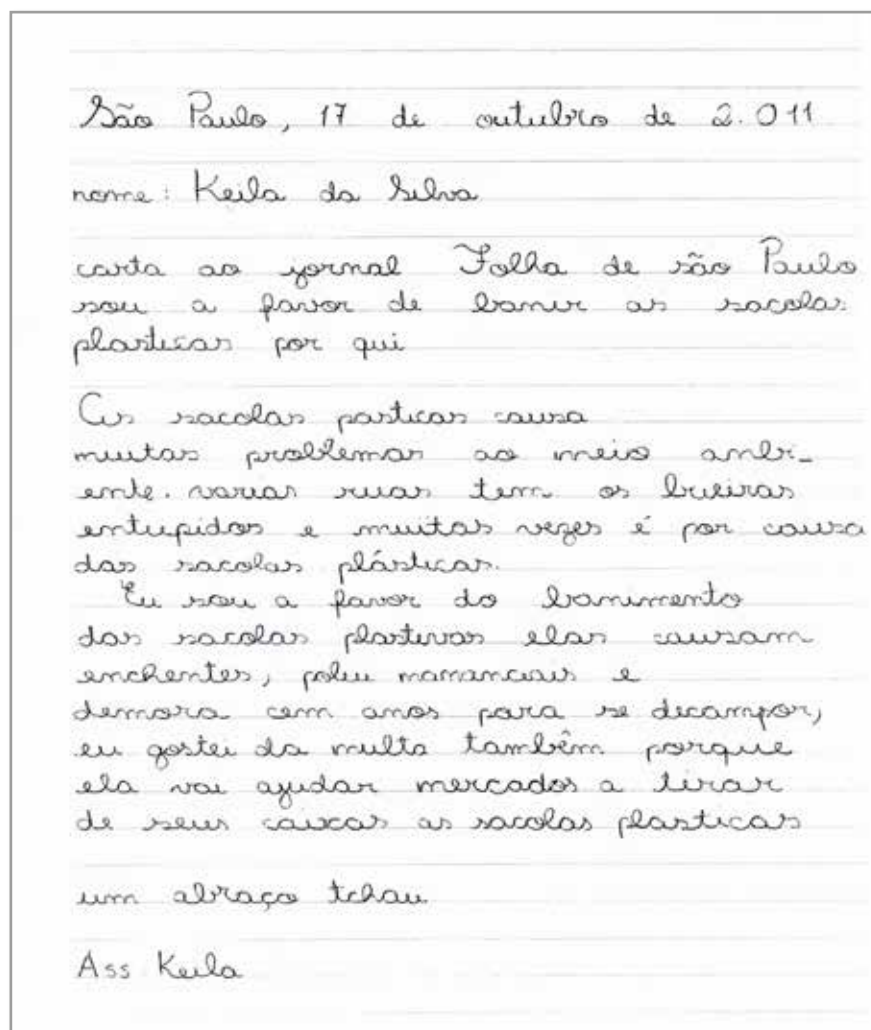 São Paulo, 17 de outubro de 2.011
nome: Keila da Silva
carta ao jornal Folha de são Paulo
sou a favor de banir as sacolas
plasticas por qui
As sacolas pasticas causa
muitas problemas ao meio ambi-
ente. varias ruas tem os bueiros
entupidos e muitas vezes é por causa
das sacolas plásticas.
Eu sou a favor do banimento
das sacolas plasticas elas causam
enchentes, polui mananciais e
demora cem anos para se decampor,
eu gostei da multa também porque
ela vai ajudar mercados a tirar
de seus caixas as sacolas plasticas
um abraço tchau
Ass Keila